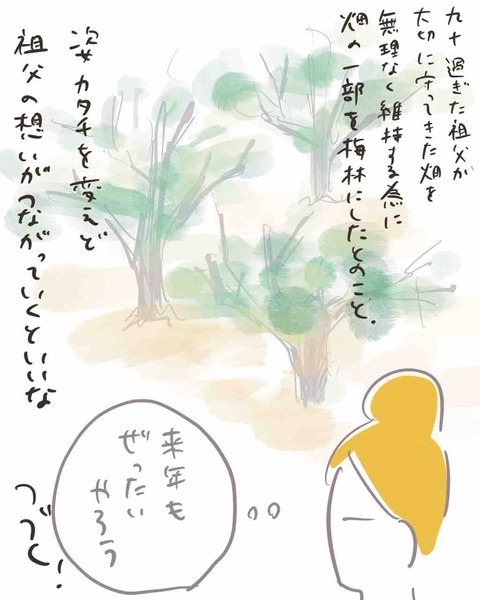 九十過ぎた祖父が
大切に守ってきた畑を
無理なく維持する為に
畑の一部を梅林にしたとのこと.
姿カタチを変えど
祖父の想いがつながっていくといいな
来年も
ぜったい
やろう
つづく!